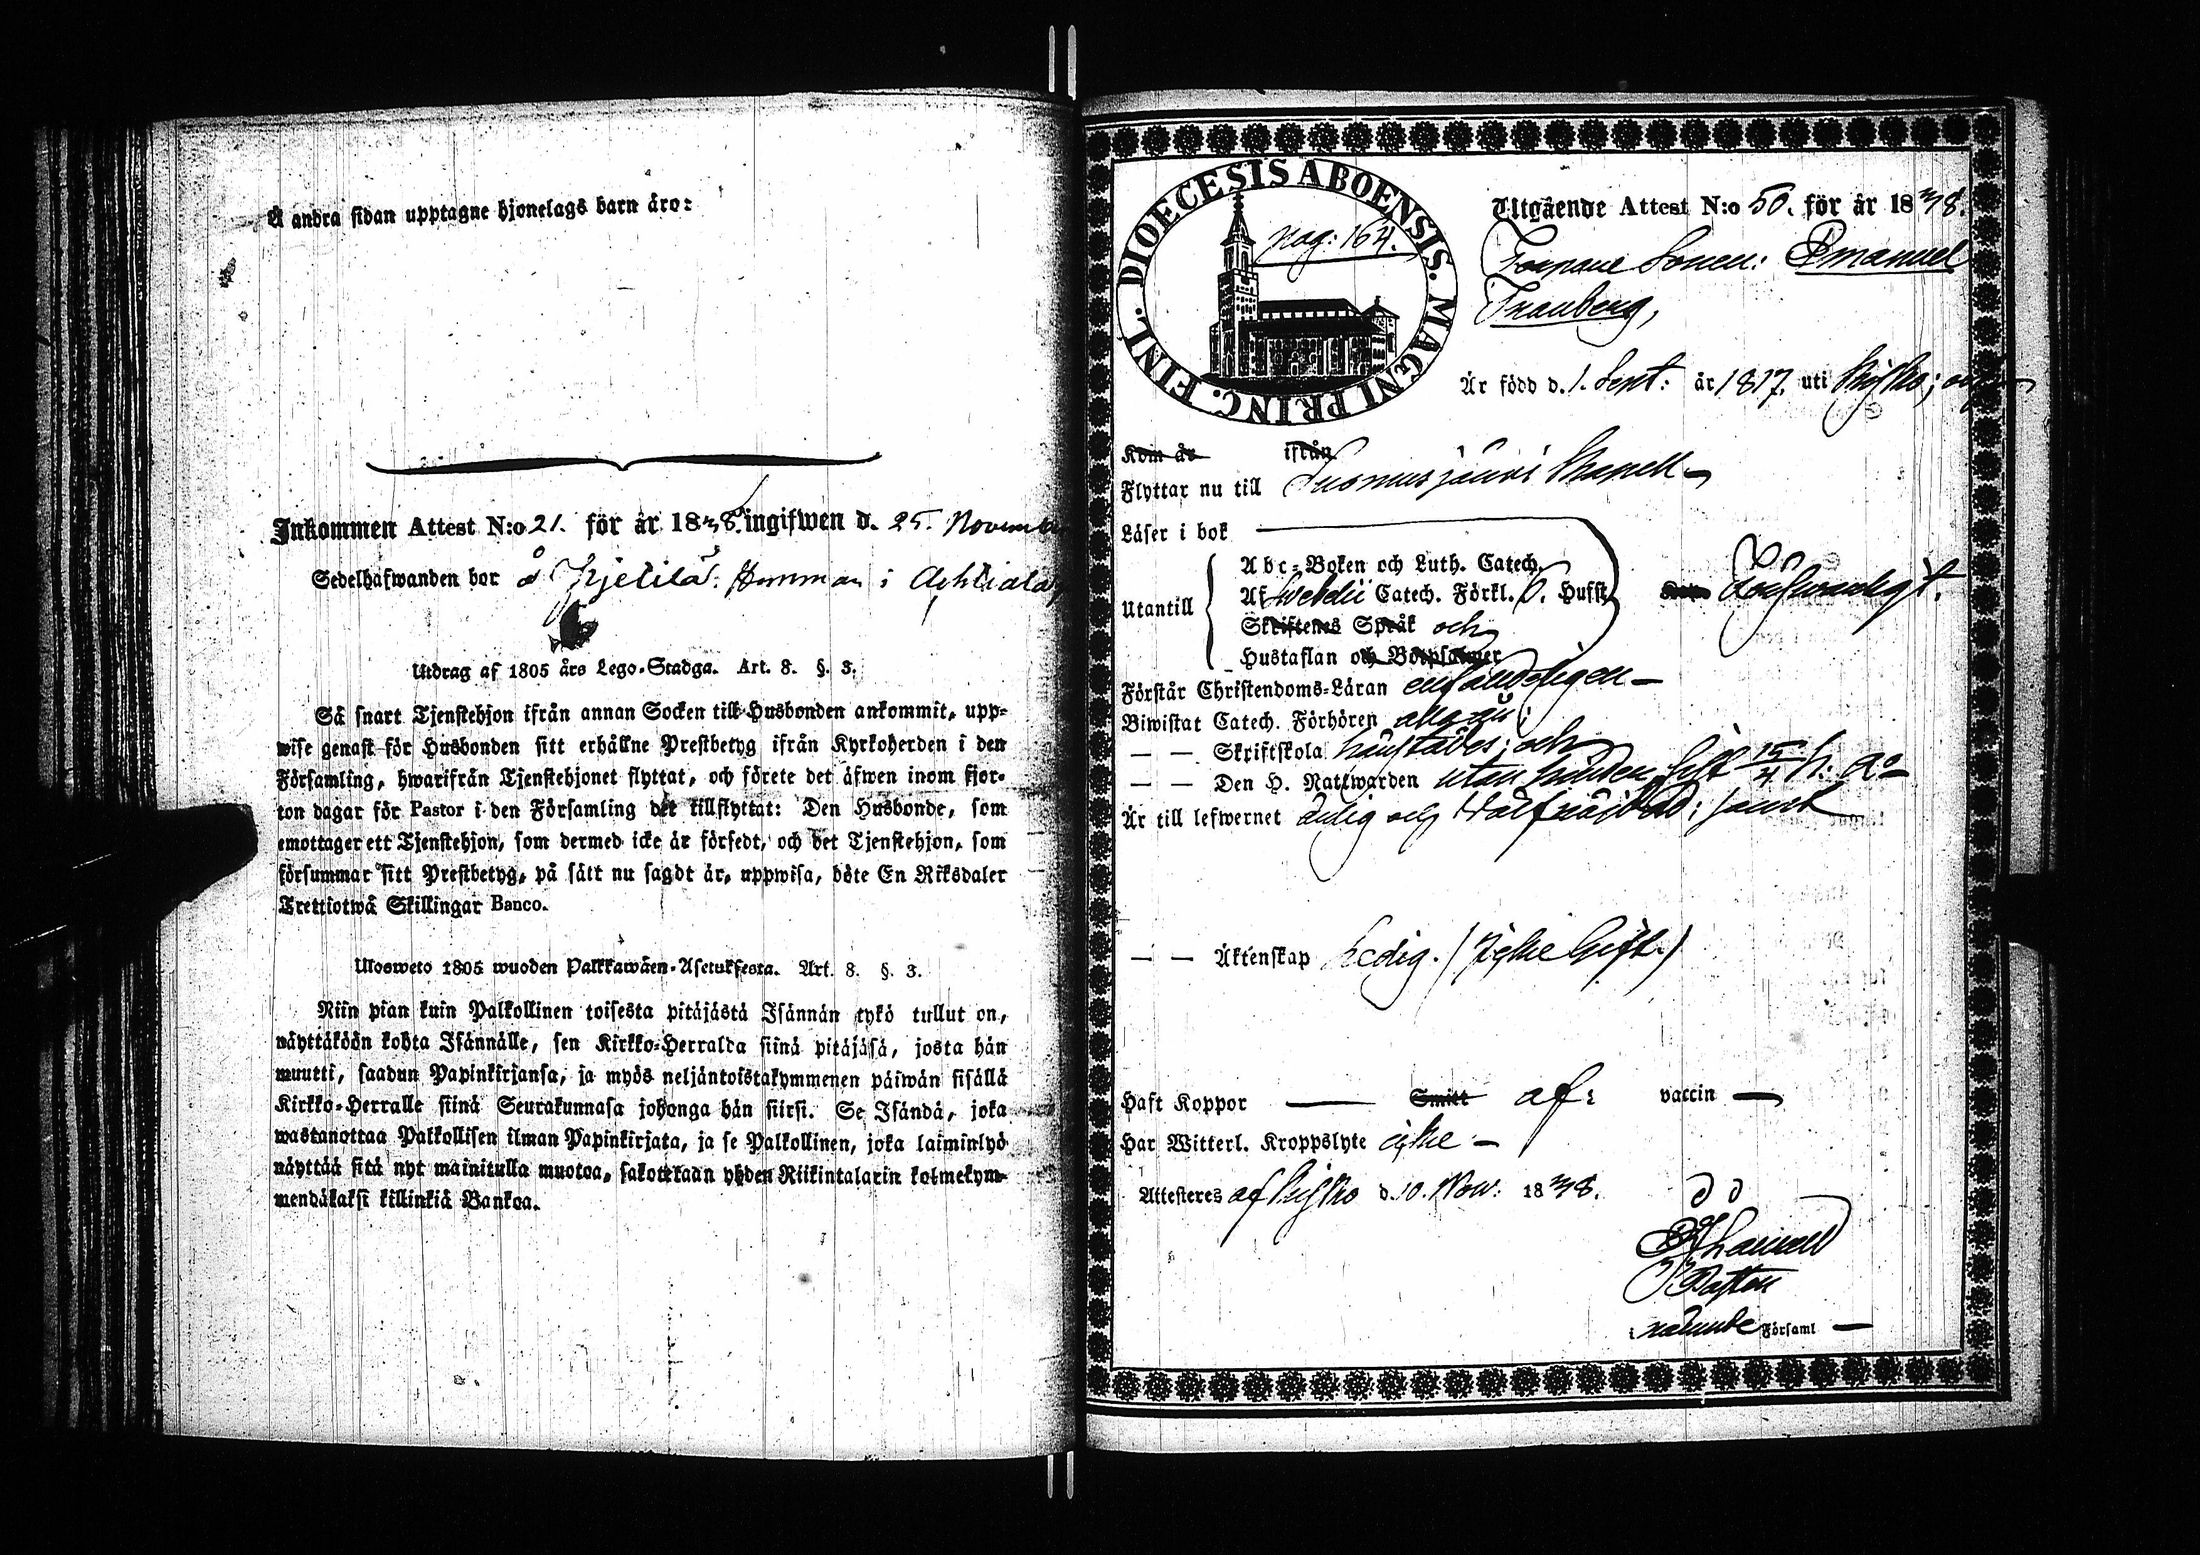 Å andra sidan upptagne hjonelags barn äro:
Inkommen Attest N:o 21. för år 1838. ingifwen d. 25. November
Sedelhafwanden bor å Kjelilä: Humman i
Utdrag af 1805 års Lego-Stadga. Art. 8. §. 3.
Så snart Tjenstehjon ifrån annan Socken till Husbonden ankommit, upp-
wise genast för Husbonden sitt erhållne Prestbetyg ifrån Kyrkoherden i den
Församling, hwarifrån Tjenstehjonet flyttat, och förete det äfwen inom fjor-
ton dagar för Pastor i den Församling det tillflyttat: Den Husbonde, som
emottager ett Tjenstehjon, som dermed icke är försedt, och det Tjenstehjon, som
försummar sitt Prestbetyg, på sätt nu sagdt är, uppwisa, böte En Riksdaler
Trettiotwå Skillingar Banco.
Ulosweto 1805 wuoden Palkkawäen-Asetuksesta. Art. 8. §. 3.
Niin pian kuin Palkollinen toisesta pitäjästä Isännän tykö tullut on,
näyttäköön kohta Isännälle, sen Kirkko-Herralda siinä pitäjäsä, josta hän
muutti, saadun Papinkirjansa, ja myös neljäntoistakymmenen päiwän sisällä
Kirkko-Herralle siinä Seurakunnasa johonga hän siirsi. Se Isändä, joka
wastanottaa Palkollisen ilman Papinkirjata, ja se Palkollinen, joka laiminlyö
näyttää sitä nyt mainitulla muotoa, sakotetaan yhden Riikintalarin kolmekym-
mendäkaksi killinkiä Bankoa.
DIOECESIS ABOENSIS. MAGNI PRINC. FINL.
pag: 164.
Utgående Attest N:o 50. för år 1838.
Sonen: Emanuel
Tranberg,
Är född d. 1. Sept: år 1817. uti Kisko;
Kom år ifrån
Flyttar nu till Suomusjärvi Kapell
Läser i bok
Utantill
Abc-Boken och Luth. Catech.
Af Swebelii Catech. Förkl. O. Hufst
Skriftenes Språk och
Hustaflan och Botpsalmer
Förswarligt.
Förstår Christendoms-Läran enfaldeligen
Biwistat Catech. Förhören
— — Skriftskola och
— — Den H. Nattwarden utan hinder sist 15/4 h. a:
Är till lefwernet ärlig och wälfräjdad; samt
— — Äktenskap Ledig. (Icke Gift.)
Haft Koppor — Smitt af: vaccin —
Har Witterl. Kroppslyte icke
Attesteres af Kisko d. 10. Now: 1838.
Pastor
i nämnde Församl